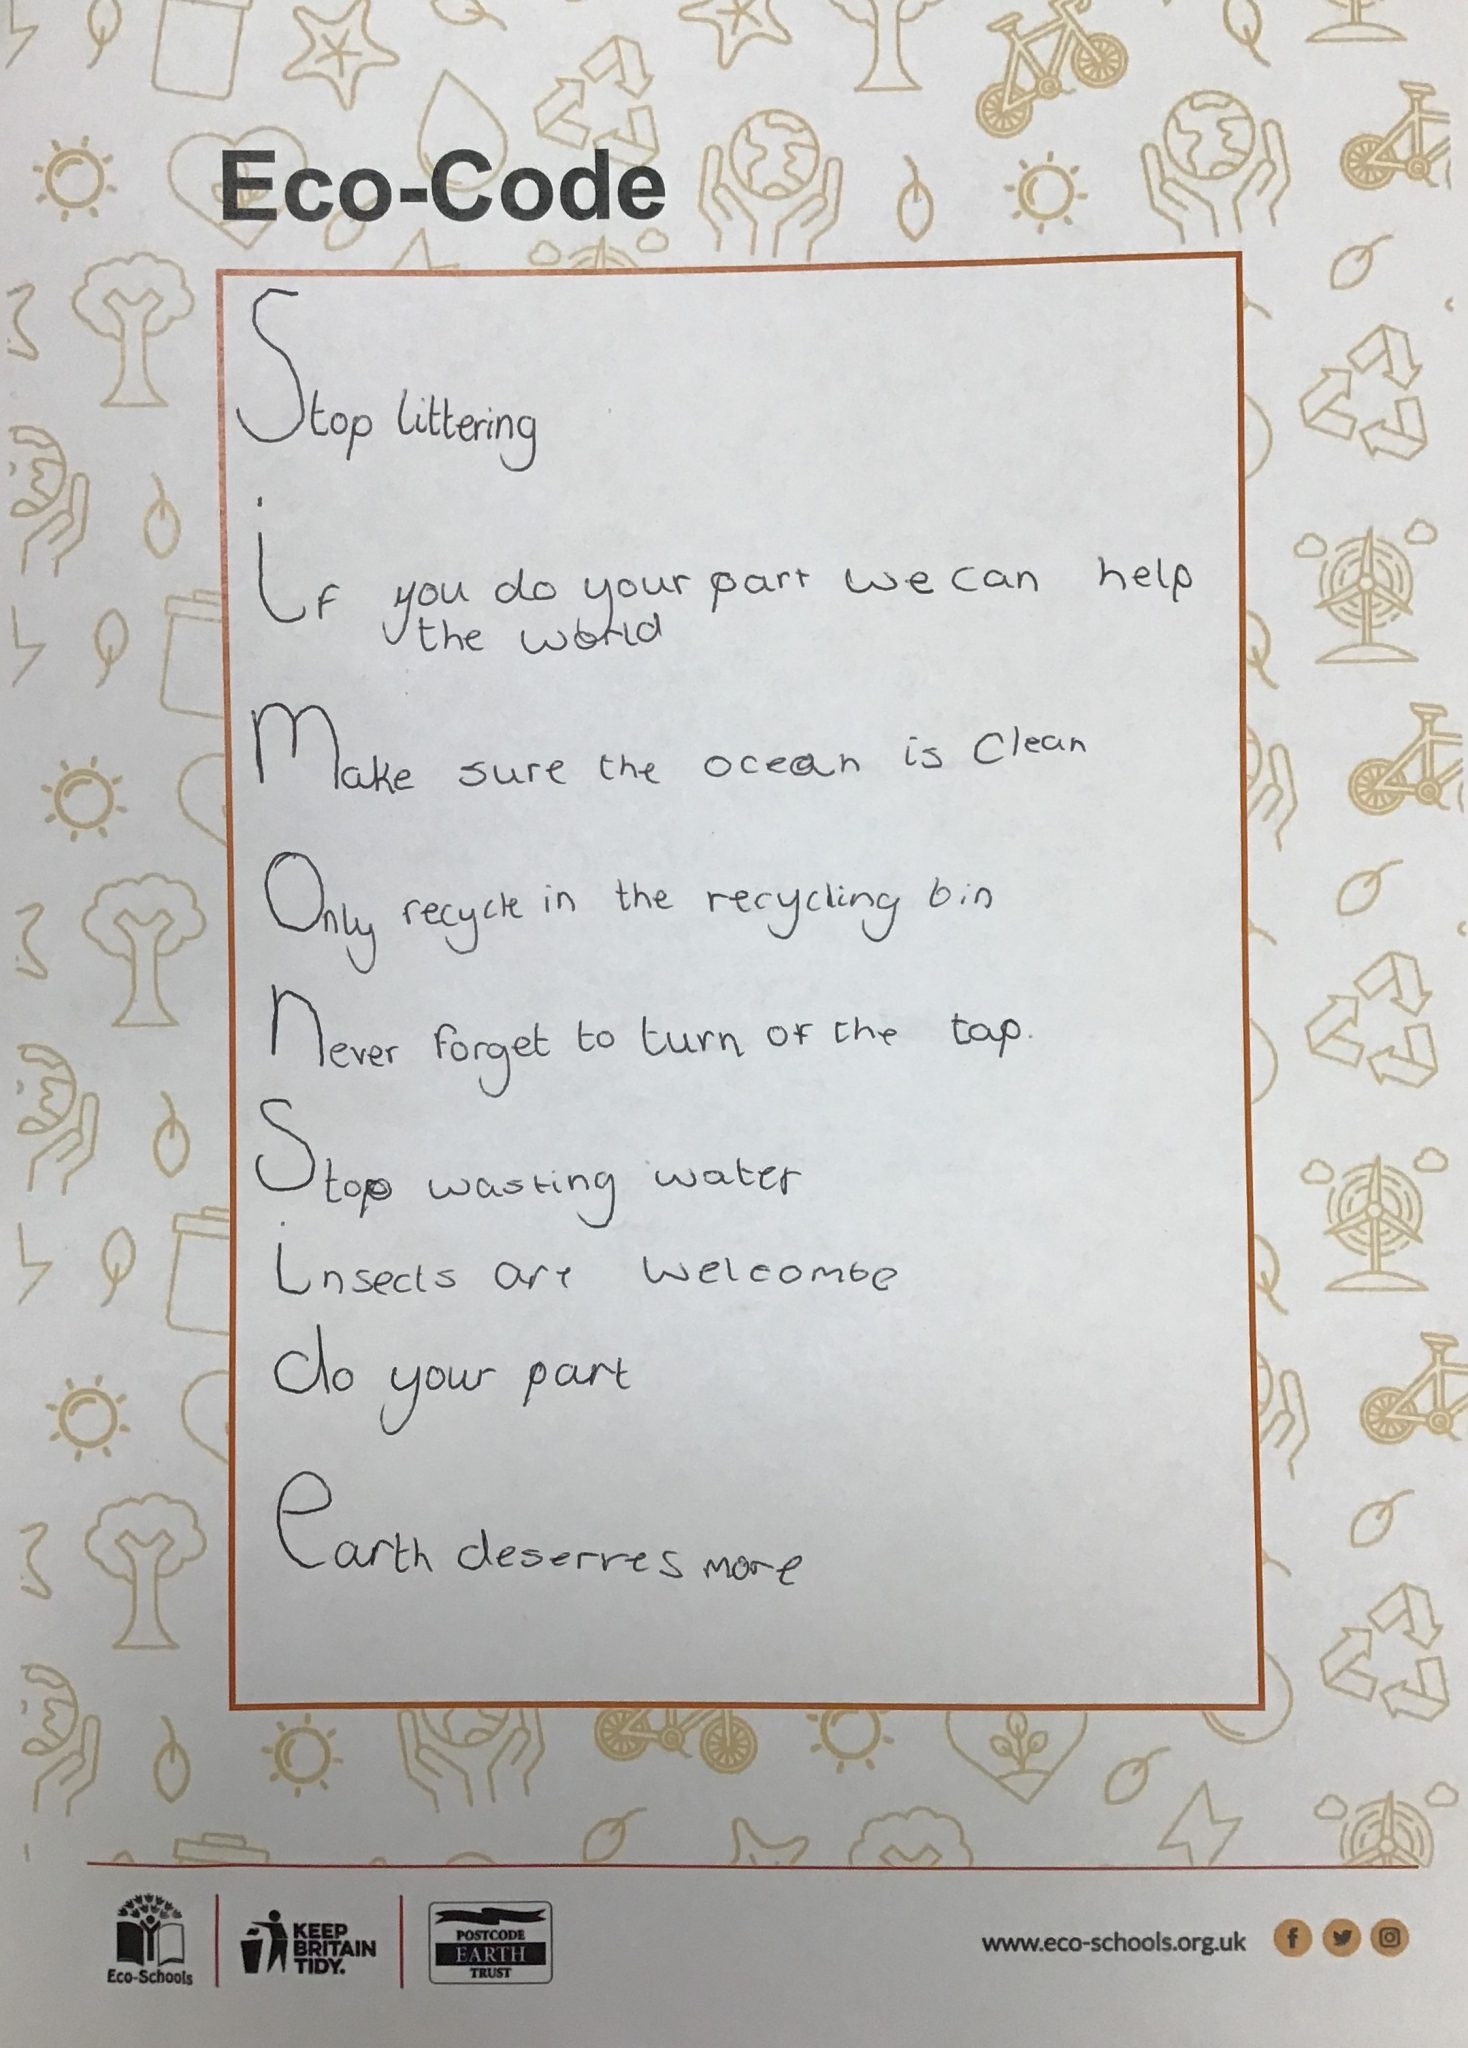 Eco-Code
Stop littering
if you do your part we can help
the world
Make sure the ocean is Clean
Only recycle in the recycling bin
never forget to turn of the tap.
Stop wasting water
insects are welcombe
do your part
earth deserves more
Eco-Schools
KEEP
BRITAIN
TIDY.
POSTCODE
EARTH
TRUST
www.eco-schools.org.uk